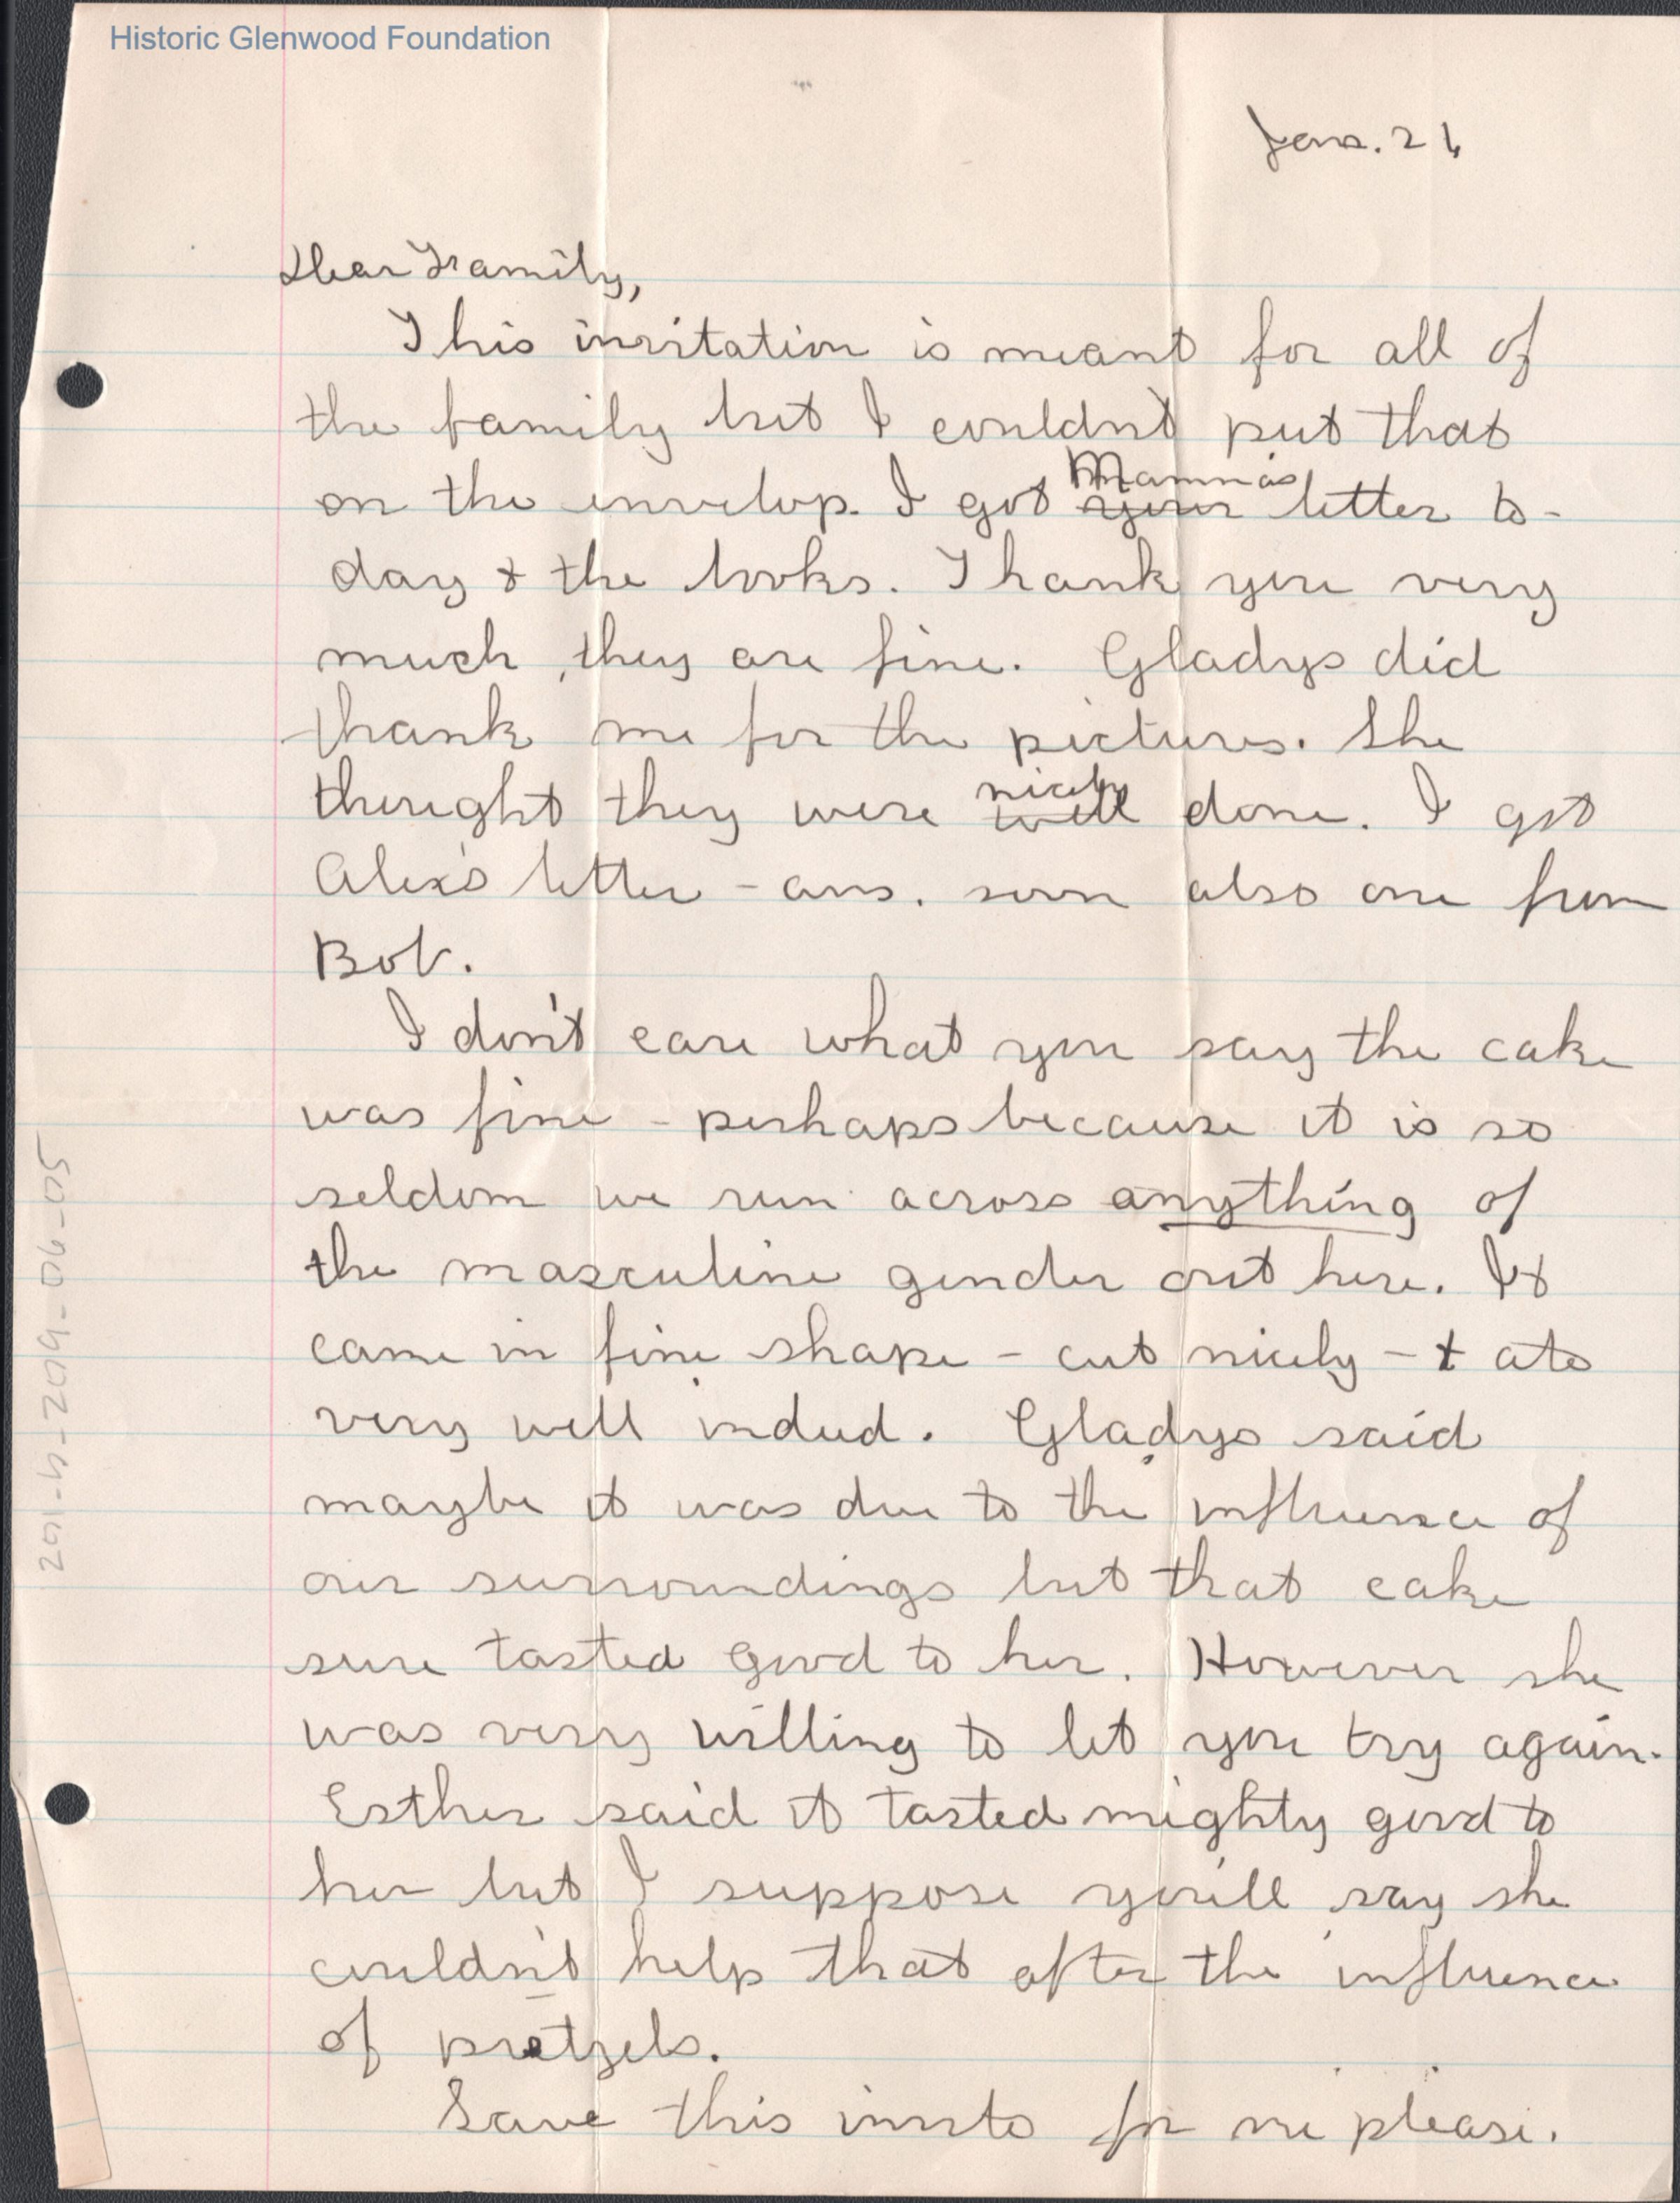 Historic Glenwood Foundation
Jan. 26
Dear Family,
This invitation is meant for all of
the family but I couldn't put that
on the envelop. I got your Mamma's letter to-
day & the books. Thank you very
much, they are fine. Gladys did
thank me for the pictures. She
thought they were well nicely done. I got
Alex's letter - ans. soon also one from
Bob.
I don't care what you say the cake
was fine - perhaps because it is so
seldom we run across anything of
the masculine gender out here. It
came in fine shape - cut nicely - & ate
very well indeed. Gladys said
maybe it was due to the influence of
our surroundings but that cake
sure tasted good to her. However she
was very willing to let you try again.
Esther said it tasted mighty good to
her but I suppose you'll say she
couldn't help that after the influence
of pretzels.
Save this invite for me please.
201-h-209-06-05